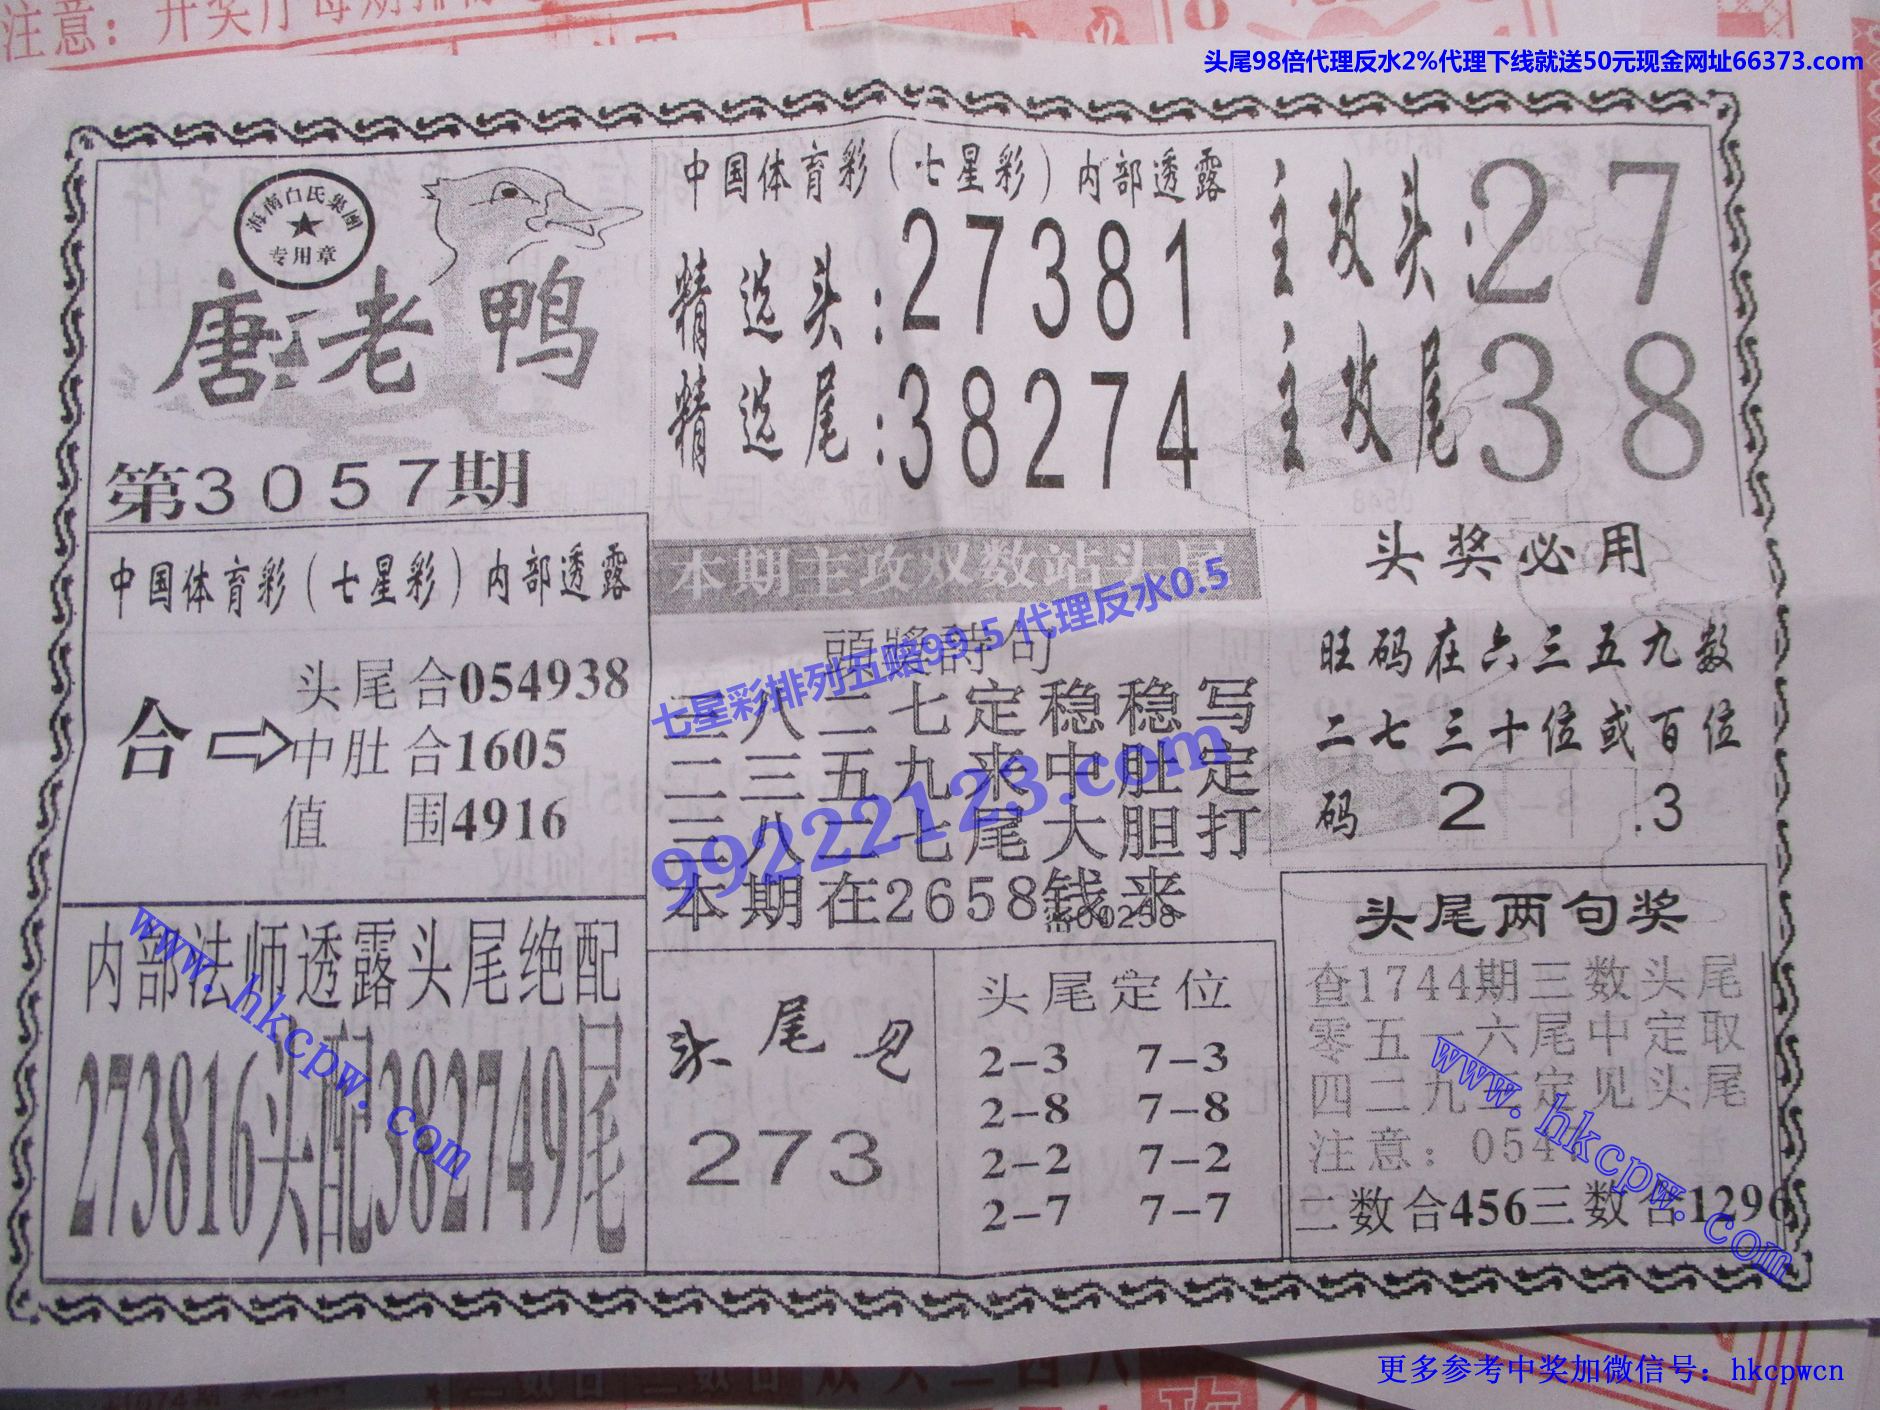 注意：开奖厅每期排
头尾98倍代理反水2%代理下线就送50元现金网址66373.com
海南白氏集团
专用章
唐老鸭
第3057期
中国体育彩（七星彩）内部透露
精选头：27381
精选尾：38274
主攻头：27
主攻尾 38
本期主攻双数站头尾
中国体育彩（七星彩）内部透露
合⇨
头尾合054938
中肚合1605
值 围4916
頭獎詩句
三八二七定稳稳写
二三五九来中肚定
三八二七尾大胆打
本期在2658钱来
七星彩排列五赔99.5 代理反水0.5
99222123.com
头奖必用
旺码在六三五九数
二七三十位或百位
码 2 .3
内部法师透露头尾绝配
273816头配382749尾
www.hkcpw.com
头尾见
273
头尾定位
2-3 7-3
2-8 7-8
2-2 7-2
2-7 7-7
头尾两句奖
查1744期三数头尾
零五一六尾中定取
四二九三定见头尾
注意：054
二数合456三数合1296
www.hkcpw.com
更多参考中奖加微信号：hkcpwcn